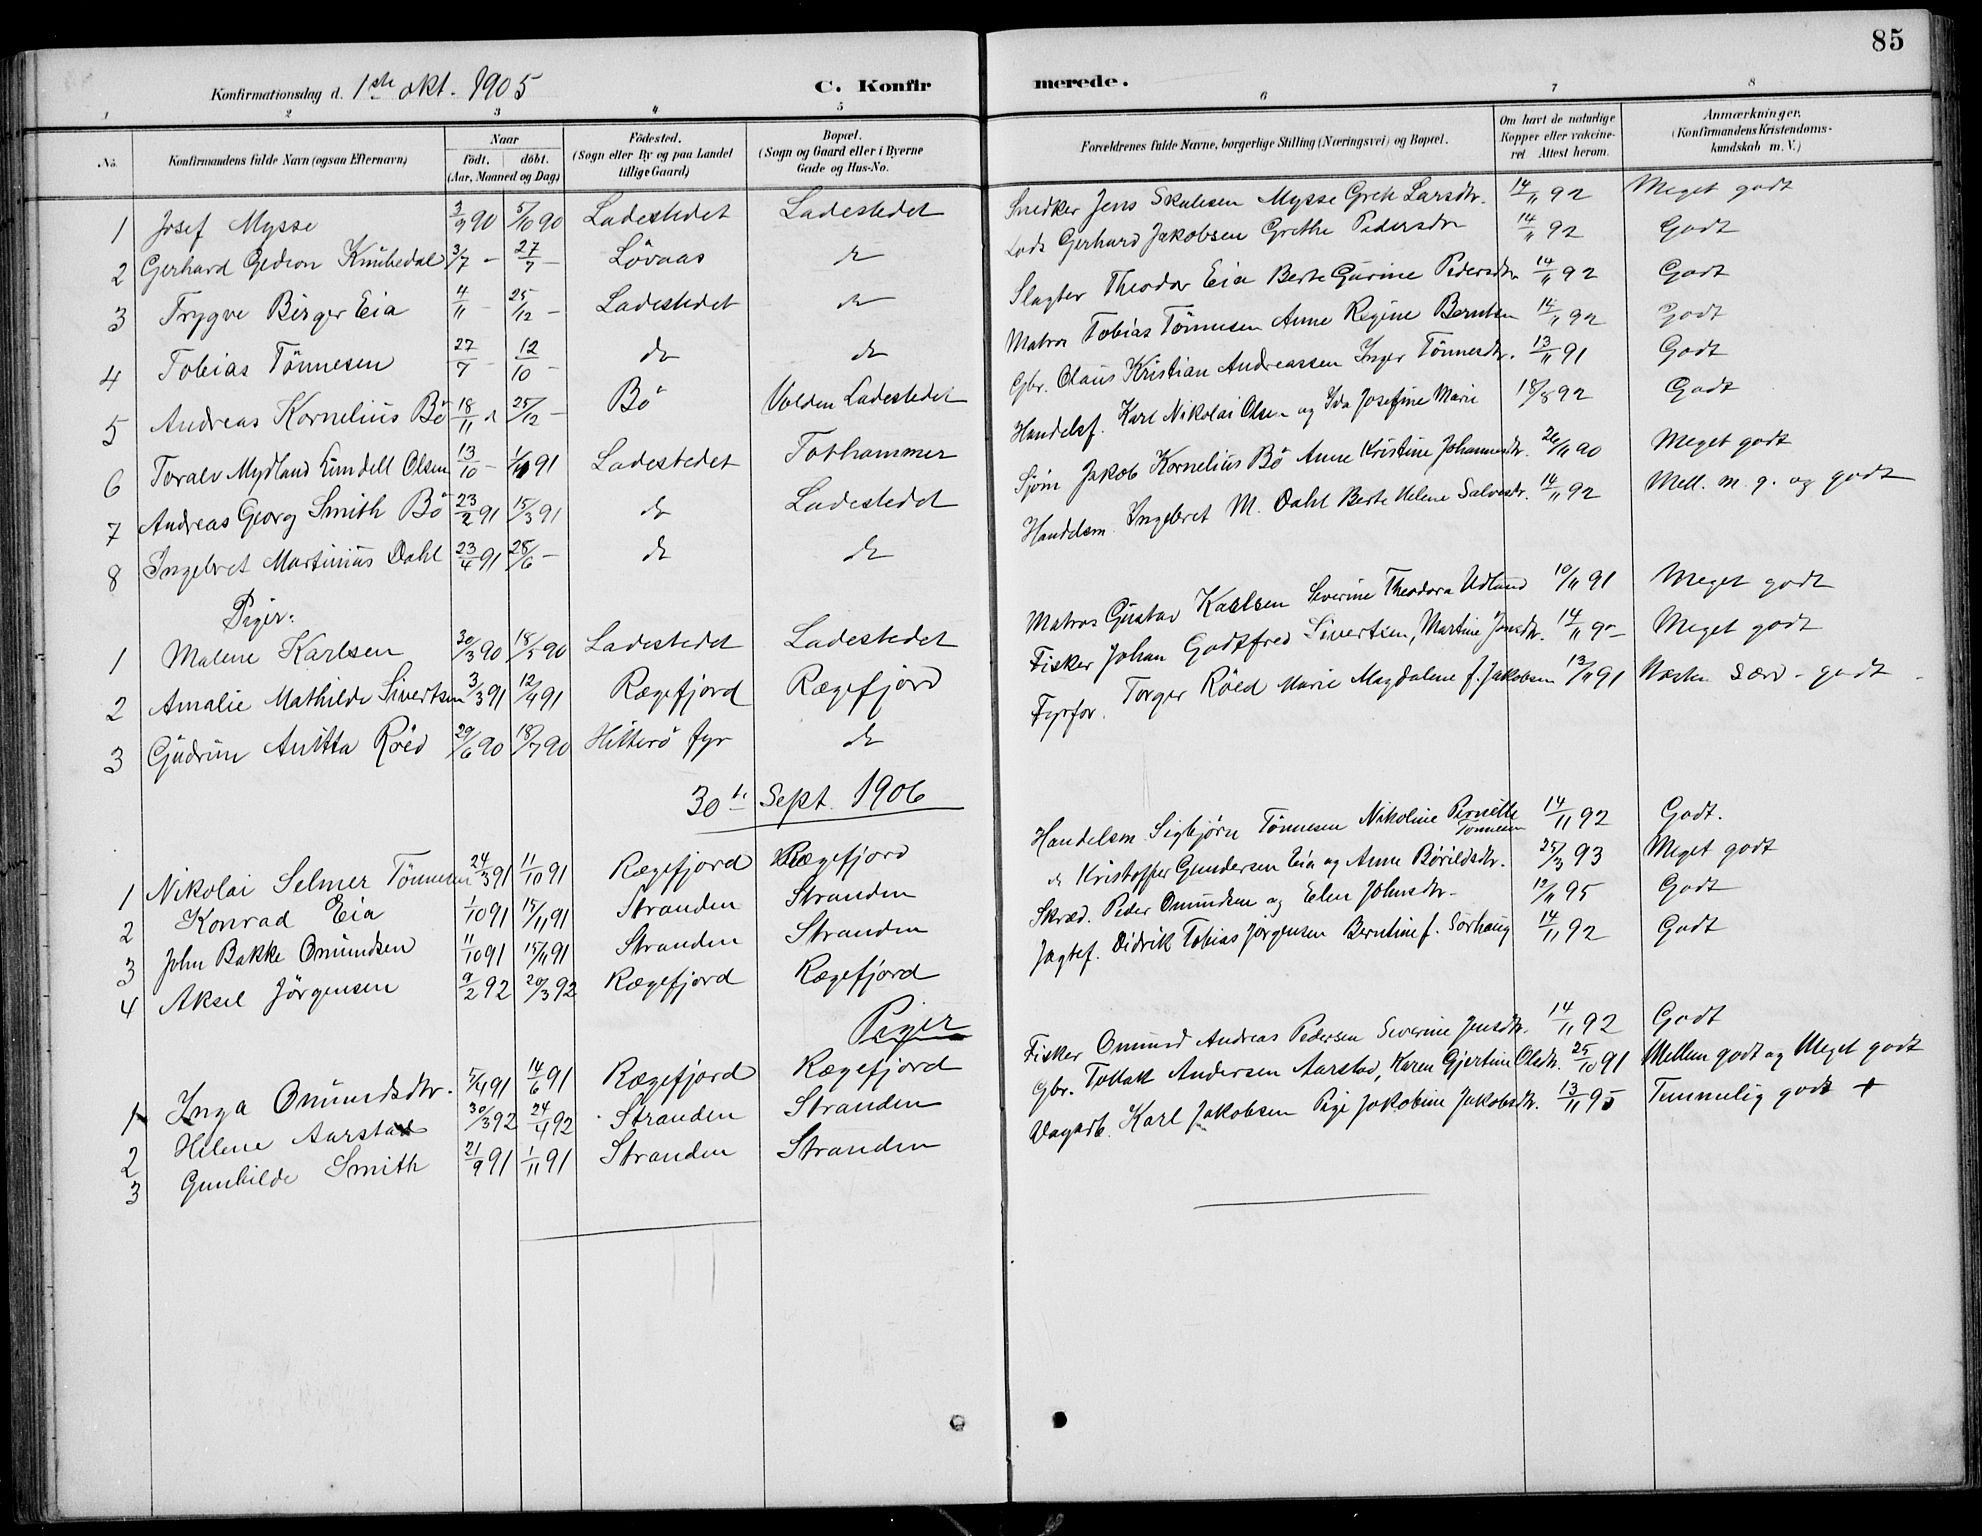 85
Konfirmationsdag d. 1ste okt. 1905 C. Konfirmerede.
1 2 3 4 5 6 7 8
No. Konfirmandens fulde Navn (ogsaa Efternavn) Naar født. døbt. (Aar, Maaned og Dag) Fødested. (Sogn eller By og paa Landet tillige Gaard) Bopæl. (Sogn og Gaard eller i Byerne Gade og Hus-No. Forældrenes fulde Navne, borgerlige Stilling (Næringsvei) og Bopæl. Om havt de naturlige Kopper eller vakcineret Attest herom. Anmærkninger. (Konfirmandens Kristendomskundskab m. V.)
1 Josef Mysse 3/9 90 5/10 90 Ladestedet Ladestedet Snedker Jens Skulesen Mysse Grete Larsdtr. 14/11 92 Meget godt
2 Gerhard Gedeon Knubedal 3/7 - 27/7 - Lövaas do Lods Gerhard Jakobsen Grethe Pedersdtr 14/11 92 Godt
3 Trygve Birger Eia 4/11 - 25/12 - Ladestedet do Slagter Theodor Eia Berte Gurine Pedersdtr 14/11 92 Godt
4 Tobias Tönnesen 27/7 - 12/10 - do do Matros Tobias Tönnesen Anne Regine Berntsen 14/11 92 Godt
5 Andreas Kornelius Bö 18/11 " 25/12 - Bö Volden Ladestedet Gbr. Olaus Kristian Andreassen Inger Tönnesdtr. 13/11 91 Godt
6 Toralv Mydland Eindell Olsen 13/10 - 1/1 91 Ladestedet Tothammer Handelsf. Karl Nikolai Olsen og Ida Josefine Marie 18/8 92 Godt
7 Andreas Georg Smith Bö 23/2 91 15/3 91 do Ladestedet Sjöm Jakob Kornelius Bö Anne Kristine Johannesdtr. 26/11 90 Meget godt
8 Ingebret Martinius Dahl 23/4 91 28/6 - do do Handelsm. Ingebret M. Dahl Berte Helene Salvesdr. 14/11 92 Mell. m. g. og godt
Piger:
1 Malene Karlsen 30/3 90 18/5 90 Ladestedet Ladestedet Matros Gustav Karlsen Severine Theodora Udland 10/11 91 Meget godt
2 Amalie Mathilde Sivertsen 3/3 91 12/4 91 Rægefjord Rægefjord Fisker Johan Godtfred Sivertsen, Martine Jonsdtr. 14/11 90 - Meget godt
3 Gudrun Anitta Röed 29/6 90 18/7 90 Hitterö fyr do Fyrfor. Torger Röed Marie Magdalene f. Jakobsen 13/11 91 Næsten Særd - godt -
30te Sept. 1906
1 Nikolai Selmer Tönnesen 24/3 91 11/10 91 Rægefjord Rægefjord Handelsm. Sigbjörn Tönnesen Nikoline Pernille Tönnesen 14/11 92 Godt.
2 Konrad Eia 1/10 91 15/11 91 Stranden Stranden do Kristoffer Gundersen Eia og Anne Börildsdtr. 25/3 93 Meget godt
3 John Bakke Omundsen 11/10 91 15/11 91 Stranden Stranden Skræd. Peder Omundsen og Elen Johnsdtr. 12/11 95 Godt
4 Aksel Jörgensen 9/2 92 20/3 92 Rægefjord Rægefjord Jagtef. Didrik Tobias Jörgensen Berntine f. Sörhaug 14/11 92 Godt
Piger
1 Inga Omundsdtr. 5/4 91 14/6 91 Rægefjord Rægefjord Fisker Omund Andreas Pedersen Severine Jensdtr. 14/11 92 Godt
2 Helene Aarstad 30/3 92 24/4 92 Stranden Stranden Gbr. Tollak Andersen Aarstad, Karen Gjertine Olsdtr. 25/10 91 Mellem godt og Meget godt
3 Gunhilde Smith 21/9 91 1/11 91 Stranden Stranden Dagarb. Karl Jakobsen Pige Jakobine Jakobsdtr. 13/11 95 Temmelig godt +